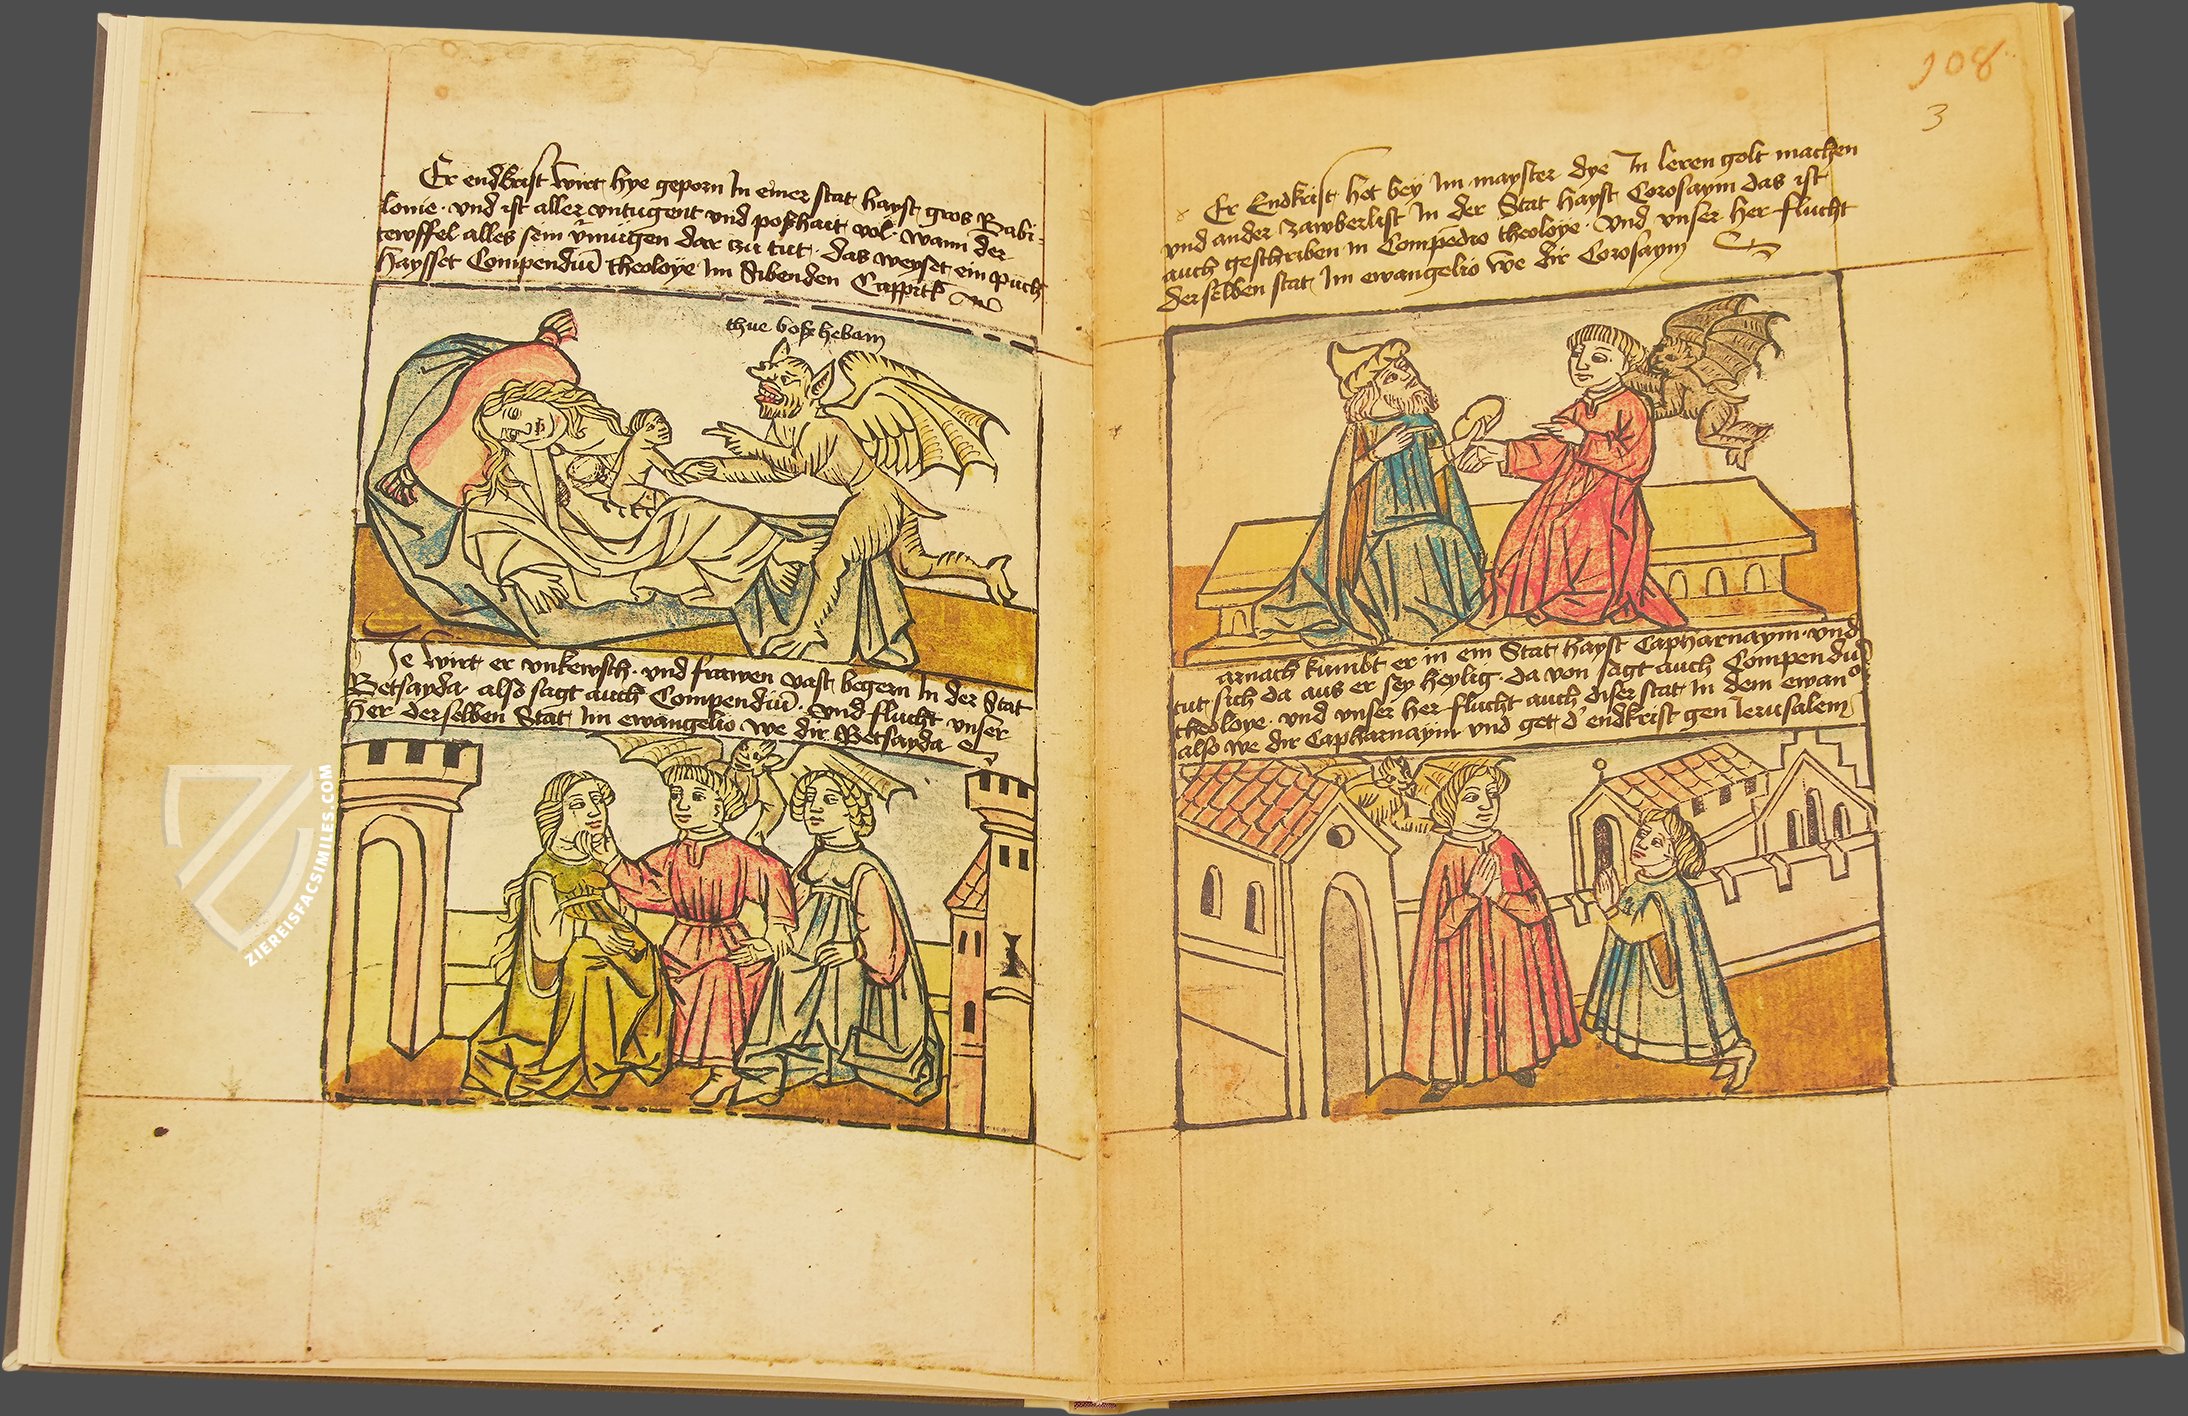 Er endkrist wirt hye geporn In einer stat hayst gros Babi=
lonie · vnd ist aller vntugent vnd poßhait vol · wann der
tewffel alles sein vmügen dar zu tut · das weyset ein puch
haysset Compendiū theoloye im Sibenden Cappitl
thue boß hebam
Ie wirt er vnkewsch · vnd frawen vast begern In der Stat
Betsayda · also sagt auch Compendiū · vnd flucht vnser
Her derselben Stat Im ewangelio we dir Betsayda
ZIEREISFACSIMILES.COM
108
3
Er Endkrist hot bey Im mayster dye In leren golt machen
vnd ander zawberlist In der Stat hayst Corosaym das ist
auch geschriben in Compēdio theoloye · Vnd vnser her flucht
derselben stat Im ewangelio we dir Corosaym
arnach kumbt er in ein Stat hayst Capharnaym · vnd
tut sich da aus er sey heylig · da von sagt auch Compendiū
theoloye · vnd vnser her flucht auch diser stat In dem ewan°
also we dir Capharnaym vnd get d' endkrist gen Ierusalem